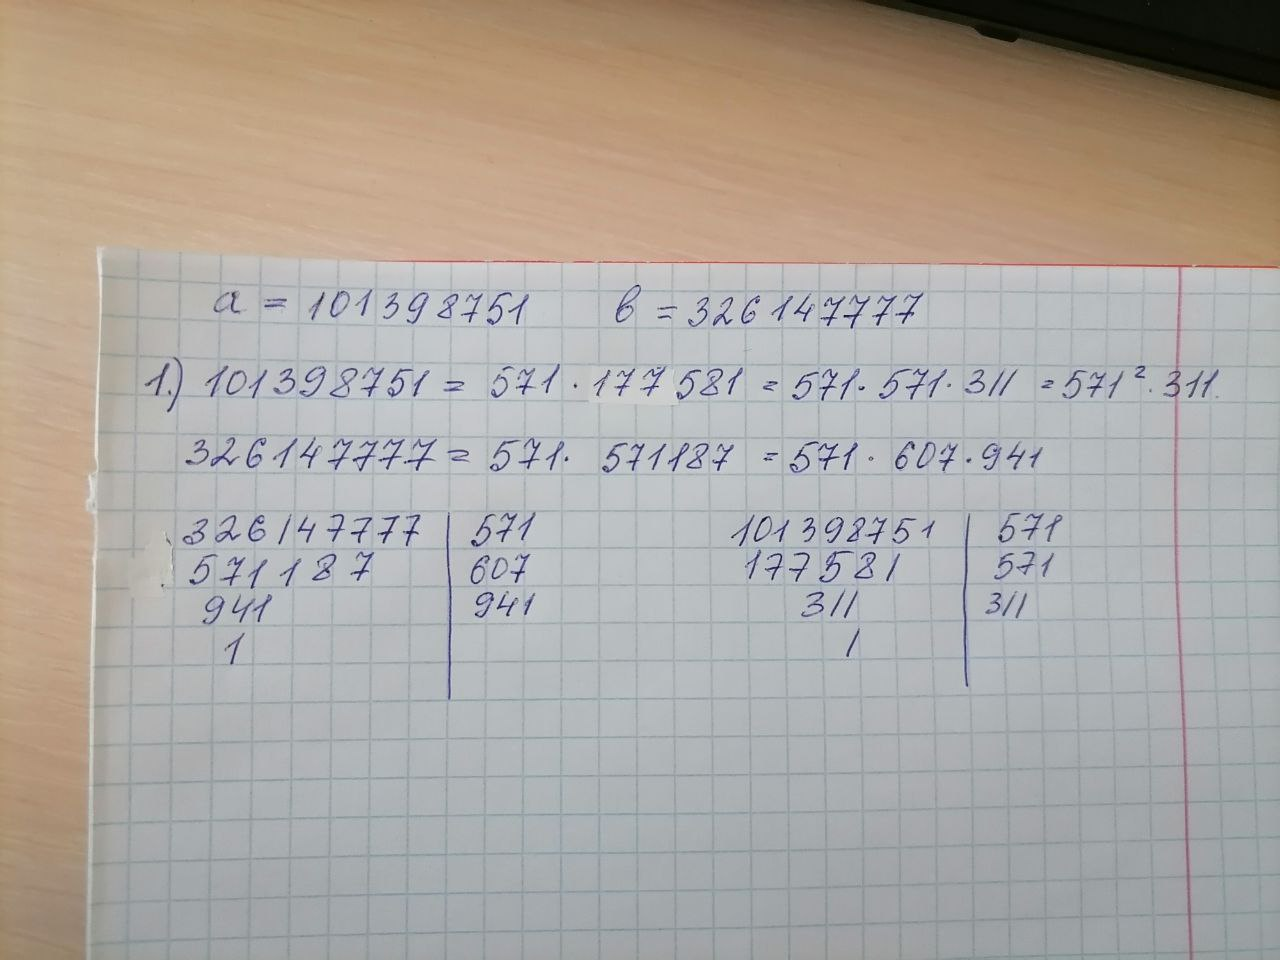 a = 101398751 в = 326147777
1.) 101398751 = 571 · 177581 = 571 · 571 · 311 = 571² · 311.
326147777 = 571 · 571187 = 571 · 607 · 941
326147777 | 571 101398751 | 571
571187 | 607 177581 | 571
941 | 941 311 | 311
1 | 1 |